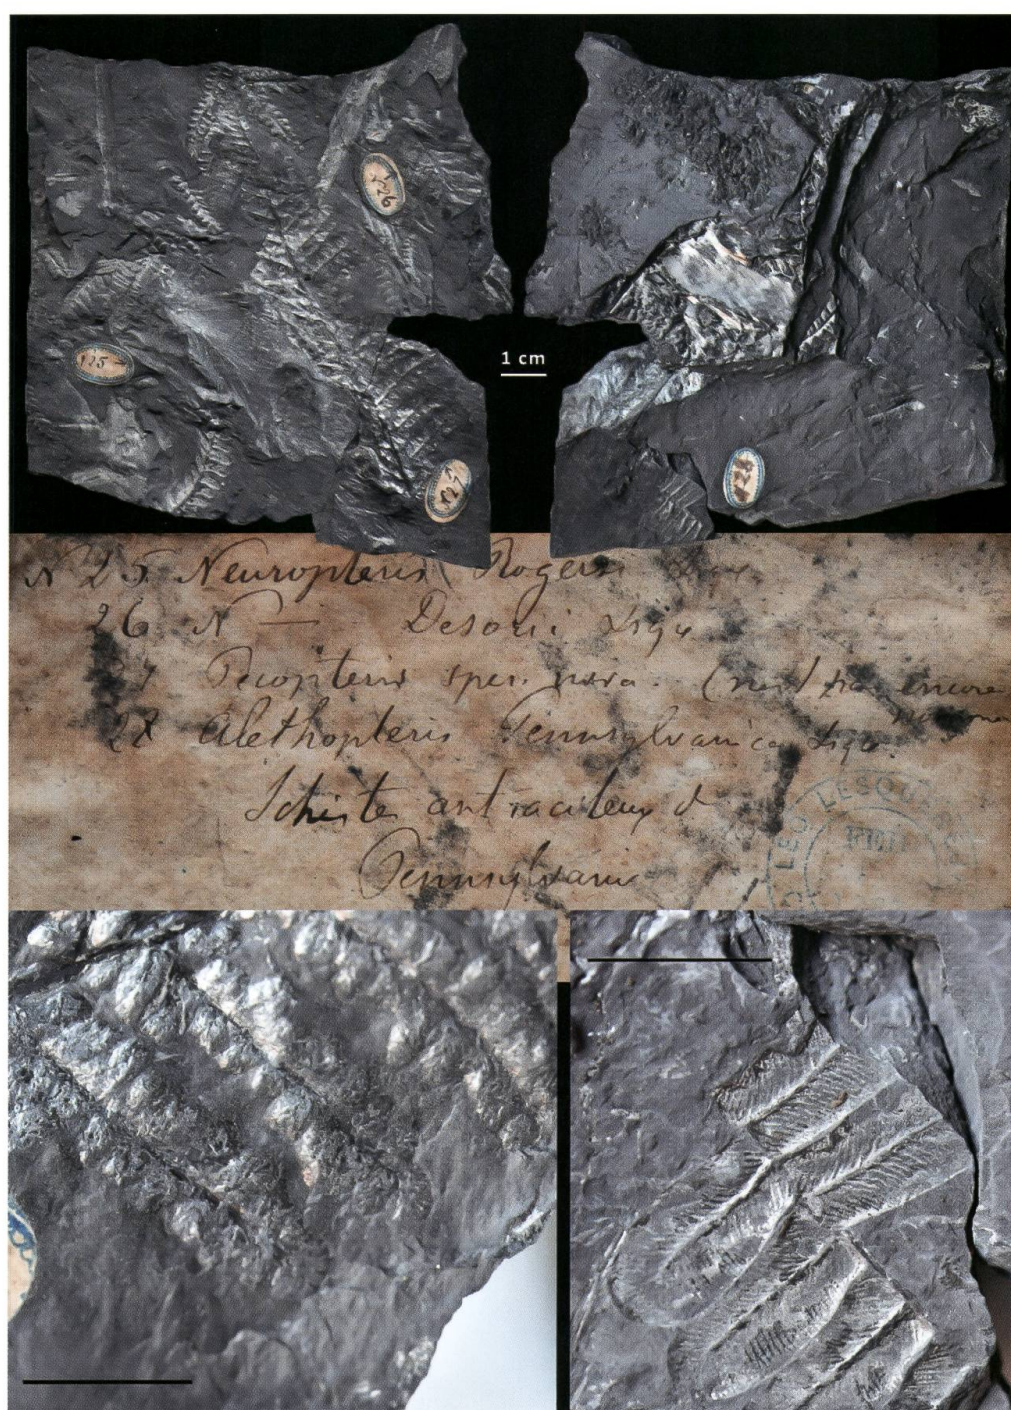 126
125
127
1 cm
128
N 25 Neuropteris Rogersi Lsqx
26 N — Desorii Lsqx
27 Pecopteris spec. nova. (n'est pas encore
28 Alethopteris Pennsylvanica Lsqx.
Schiste antraciteux d
Pennsylvanie
LEO LESQU